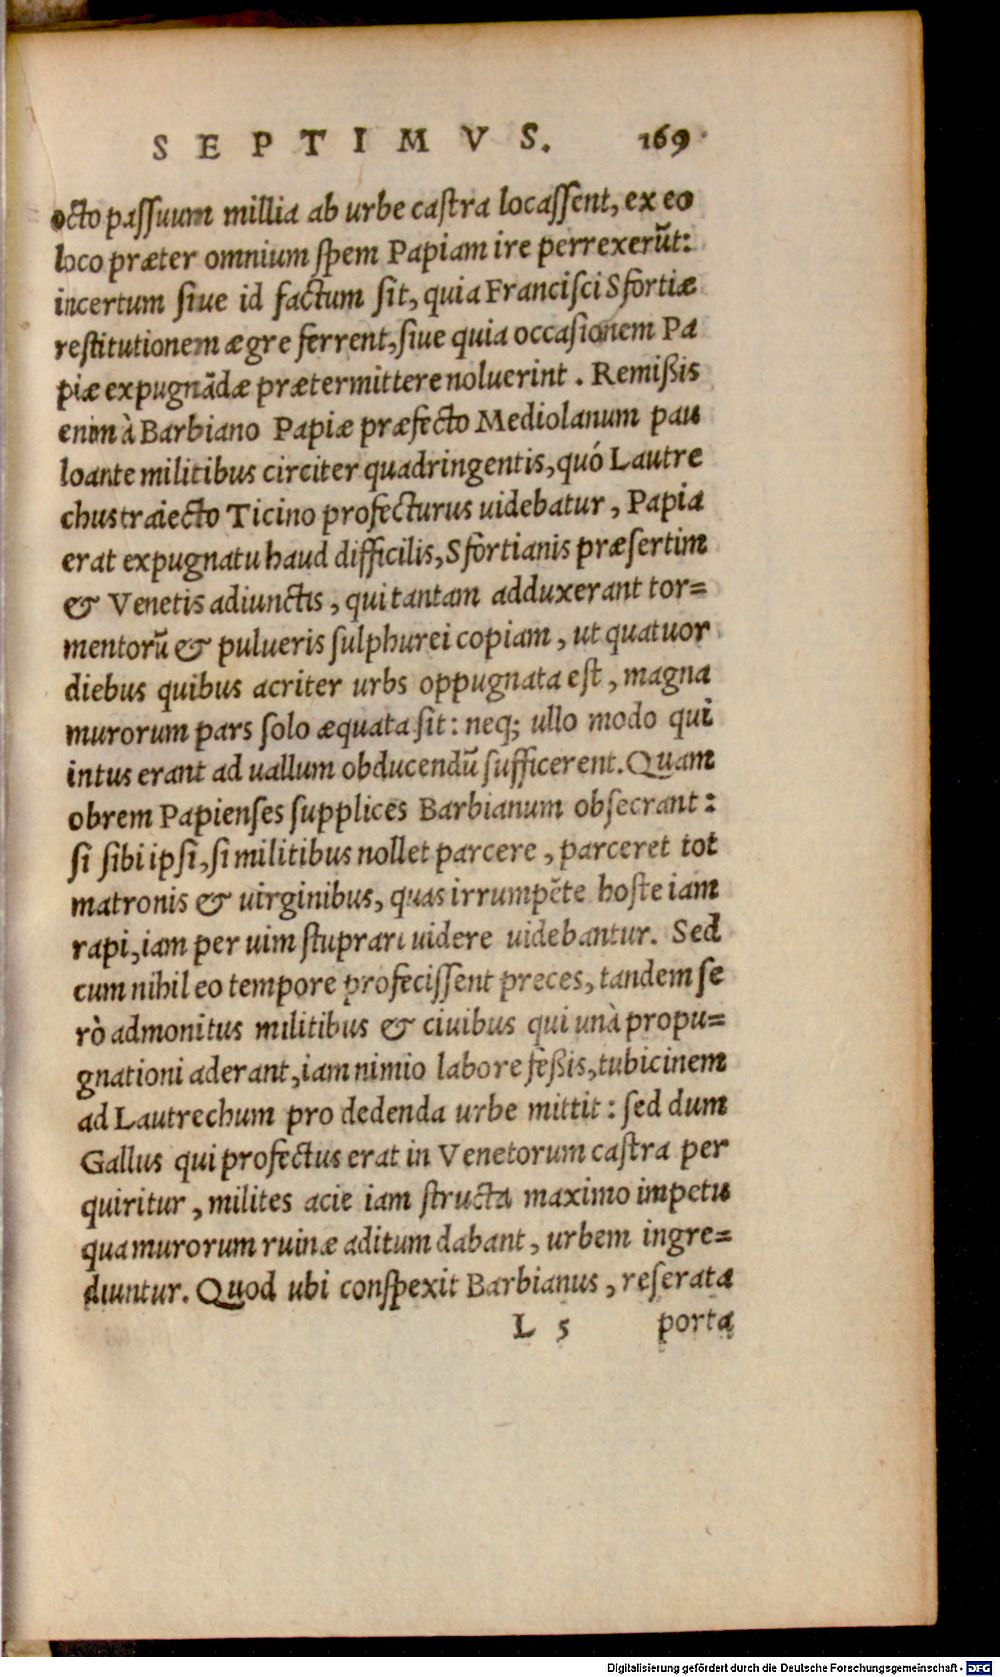 SEPTIMVS. 169
octo passuum millia ab urbe castra locassent, ex eo
loco præter omnium spem Papiam ire perrexerūt:
incertum siue id factum sit, quia Francisci Sfortiæ
restitutionem ægre ferrent, siue quia occasionem Pa
piæ expugnādæ prætermittere noluerint. Remißis
enim à Barbiano Papiæ præfecto Mediolanum pau
loante militibus circiter quadringentis, quó Lautre
chus traiecto Ticino profecturus uidebatur, Papia
erat expugnatu haud difficilis, Sfortianis præsertim
& Venetis adiunctis, qui tantam adduxerant tor=
mentorū & pulueris sulphurei copiam, ut quatuor
diebus quibus acriter urbs oppugnata est, magna
murorum pars solo æquata sit: neq; ullo modo qui
intus erant ad uallum obducendū sufficerent. Quam
obrem Papienses supplices Barbianum obsecrant:
si sibi ipsi, si militibus nollet parcere, parceret tot
matronis & uirginibus, quas irrumpēte hoste iam
rapi, iam per uim stuprari uidere uidebantur. Sed
cum nihil eo tempore profecissent preces, tandem se
rò admonitus militibus & ciuibus qui unà propu=
gnationi aderant, iam nimio labore feßis, tubicinem
ad Lautrechum pro dedenda urbe mittit: sed dum
Gallus qui profectus erat in Venetorum castra per
quiritur, milites acie iam structa maximo impetu
qua murorum ruinæ aditum dabant, urbem ingre=
diuntur. Quod ubi conspexit Barbianus, reserata
L 5 porta
Digitalisierung gefördert durch die Deutsche Forschungsgemeinschaft - DFG